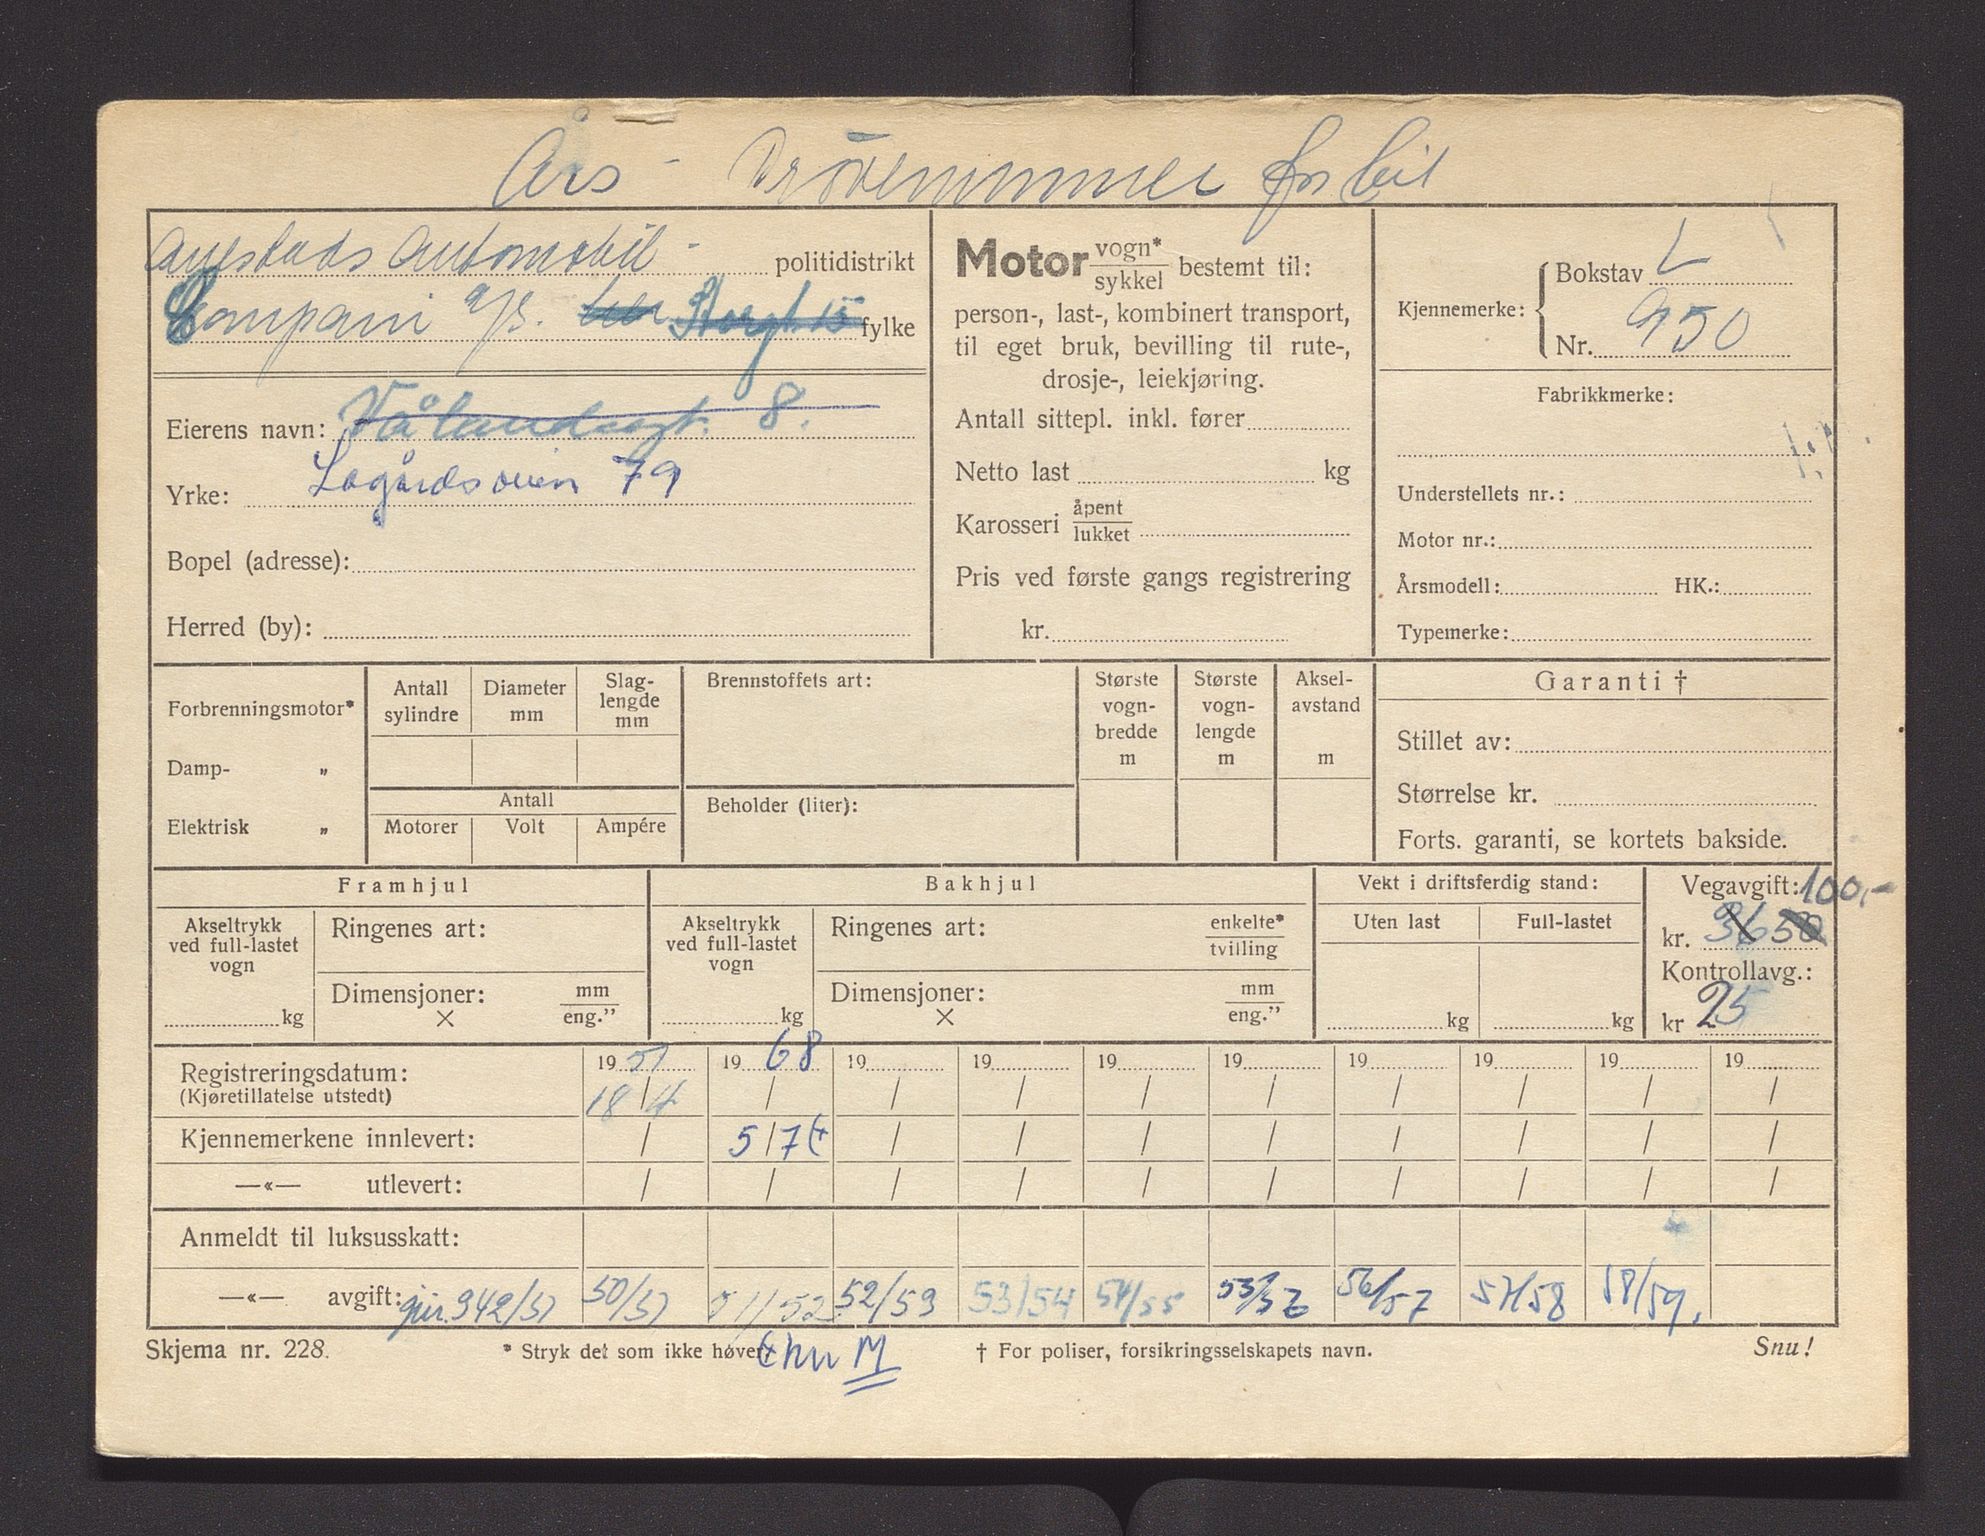 Års - Prövenummer for bil
Aulstads Automobil - politidistrikt
Compani a/s. Storgt. 15 fylke
Eierens navn: Vålandsgt. 8.
Yrke: Lagårdsveien 79
Bopel (adresse):
Herred (by):
Motor vogn* sykkel bestemt til:
person-, last-, kombinert transport,
til eget bruk, bevilling til rute-,
drosje-, leiekjøring.
Antall sittepl. inkl. fører
Netto last kg
Karosseri åpent lukket
Pris ved første gangs registrering
kr.
Kjennemerke: Bokstav L
Nr. 950
Fabrikkmerke:
Understellets nr.:
Motor nr.:
Årsmodell: HK.:
Typemerke:
Forbrenningsmotor*
Damp- „
Elektrisk „
Antall sylindre
Diameter mm
Slag-lengde mm
Antall
Motorer Volt Ampére
Brennstoffets art:
Beholder (liter):
Største vogn-bredde m
Største vogn-lengde m
Aksel-avstand m
Garanti †
Stillet av:
Størrelse kr.
Forts. garanti, se kortets bakside.
Framhjul
Akseltrykk ved full-lastet vogn
kg
Ringenes art:
Dimensjoner: mm eng.”
×
Bakhjul
Akseltrykk ved full-lastet vogn
kg
Ringenes art: enkelte* tvilling
Dimensjoner: mm eng.”
×
Vekt i driftsferdig stand:
Uten last Full-lastet
kg kg
Vegavgift: 100,-
kr. 36 50
Kontrollavg.:
kr 25
Registreringsdatum: 19 51 19 68 19 19 19 19 19 19 19 19
(Kjøretillatelse utstedt) 18/4 / / / / / / / / /
Kjennemerkene innlevert: / 5/7 / / / / / / / /
—«— utlevert: / / / / / / / / / /
Anmeldt til luksusskatt:
—«— avgift: gir. 942/51 50/51 51/52 52/53 53/54 54/55 55/56 56/57 57/58 58/59.
Skjema nr. 228. * Stryk det som ikke høver. M † For poliser, forsikringsselskapets navn. Snu!